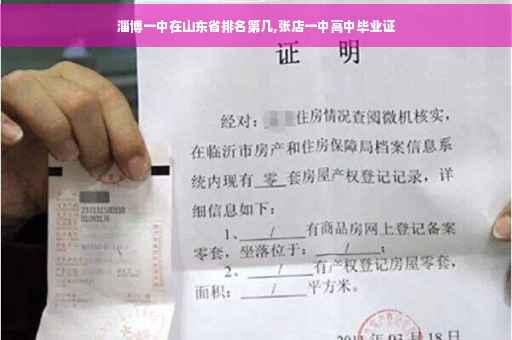 淄博一中在山东省排名第几,张店一中高中毕业证
证 明
经对： 住房情况查阅微机核实，
在临沂市房产和住房保障局档案信息系
统内现有 零 套房屋产权登记记录，详
细信息如下：
1、 / 有商品房网上登记备案
零套，坐落位于： / ；
2、 / 有产权登记房屋零套，
面积： / 平方米。
03月18日